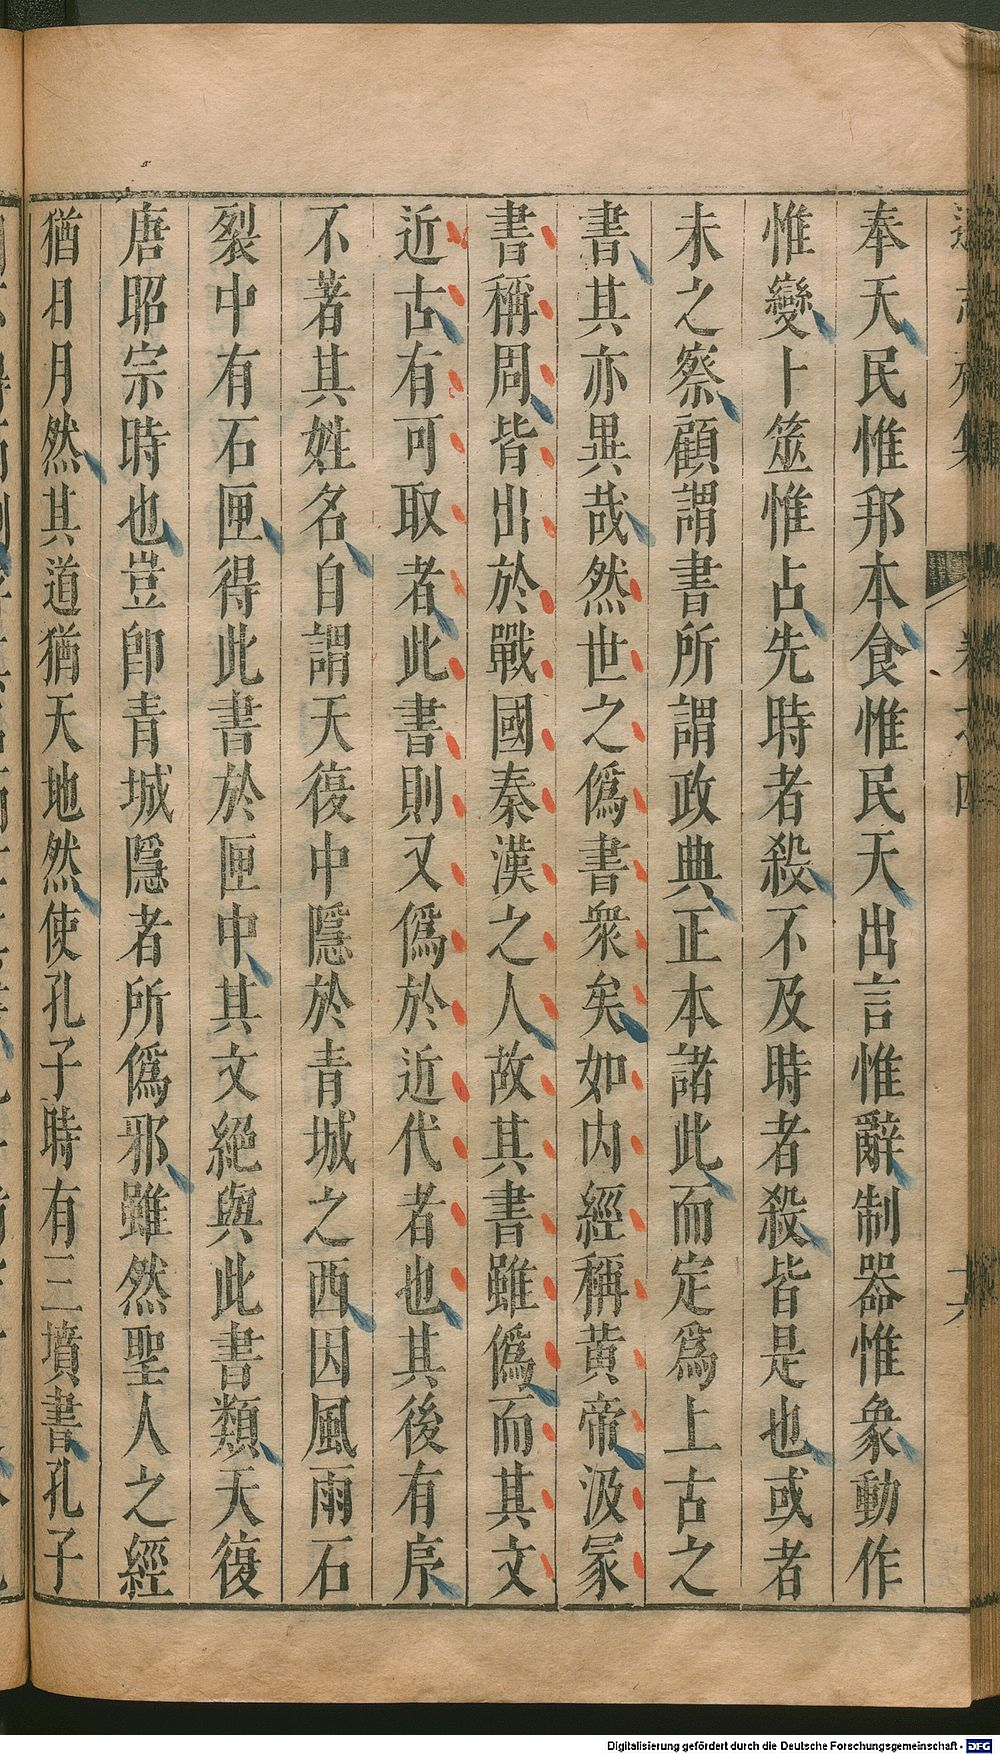 奉天民惟邦本食惟民天出言惟辭制器惟象動作
惟變卜筮惟占先時者殺不及時者殺皆是也或者
未之察顧謂書所謂政典正本諸此而定爲上古之
書其亦異哉然世之僞書衆矣如内經稱黃帝汲冢
書稱周皆出於戰國秦漢之人故其書雖僞而其文
近古有可取者此書則又僞於近代者也其後有序
不著其姓名自謂天復中隱於青城之西因風雨石
裂中有石匣得此書於匣中其文絕與此書類天復
唐昭宗時也豈卽青城隱者所僞邪雖然聖人之經
猶日月然其道猶天地然使孔子時有三墳書孔子
Digitalisierung gefördert durch die Deutsche Forschungsgemeinschaft - DFG